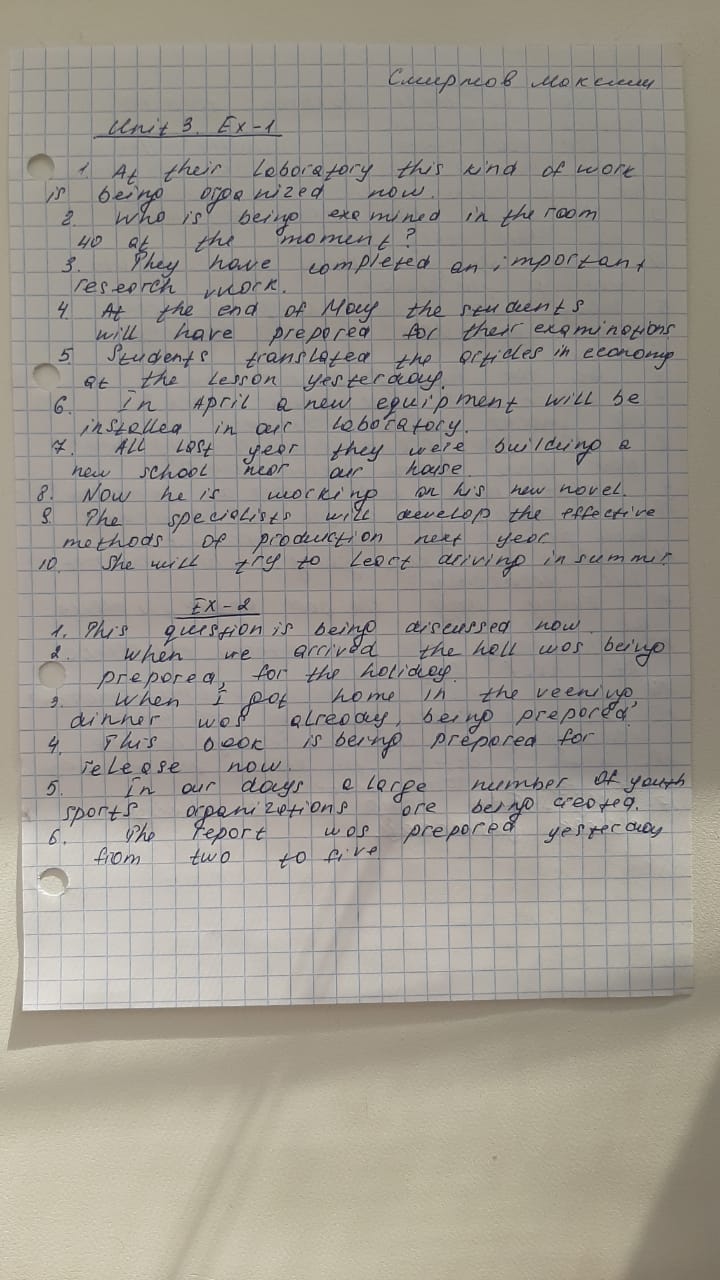 Смирнов Максим
Unit 3. Ex-1
1. At their laboratory this kind of work
is being organized now.
2. Who is being examined in the room
40 at the moment?
3. They have completed an important
research work.
4. At the end of May the students
will have prepared for their examinations
5. Students translated the articles in economy
at the lesson yesterday.
6. In April a new equipment will be
installed in our laboratory.
7. All last year they were building a
new school near our house.
8. Now he is working on his new novel.
9. The specialists will develop the effective
methods of production next year
10. She will try to leart driving in summer.
Ex-2
1. This question is being discussed now.
2. When we arrived the hall was being
prepared, for the holiday.
3. When I got home in the veening,
dinner was already, being prepared.
4. This book is being prepared for
release now.
5. In our days a large number of youth
sports organizations are being created.
6. The report was prepared yesterday
from two to five